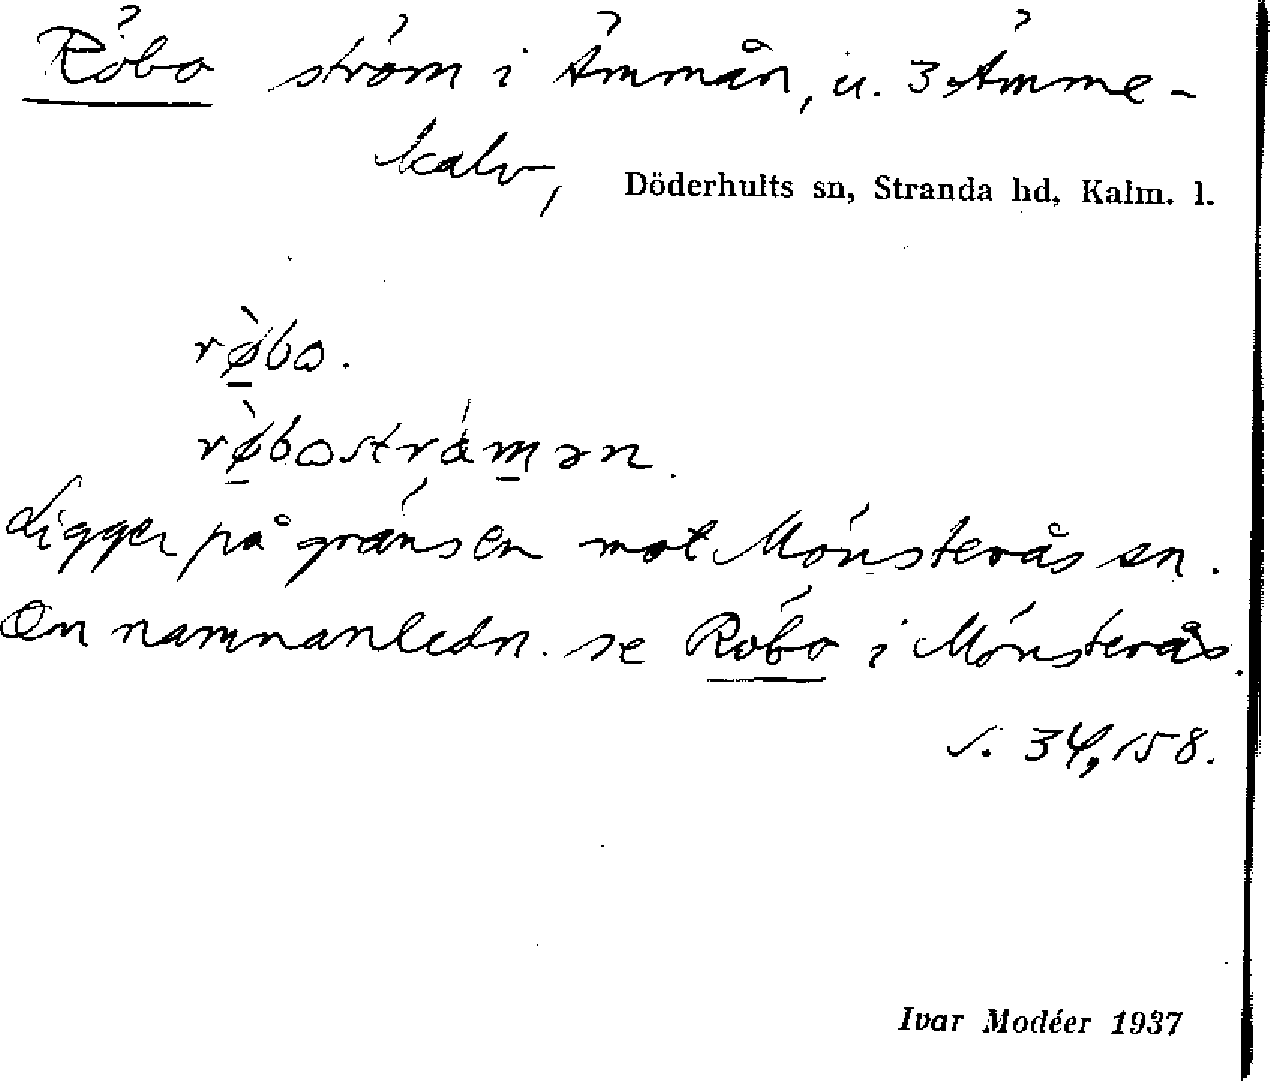 Röbo ström i Ämmån, u. 3 Ämme-
kalv, Döderhults sn, Stranda hd, Kalm. l.
rø̀bo.
rø̀bostrǿmən.
Ligger på gränsen mot Mönsterås sn.
Om namnanledn. se Röbo i Mönsterås.
s. 34,158.
Ivar Modéer 1937